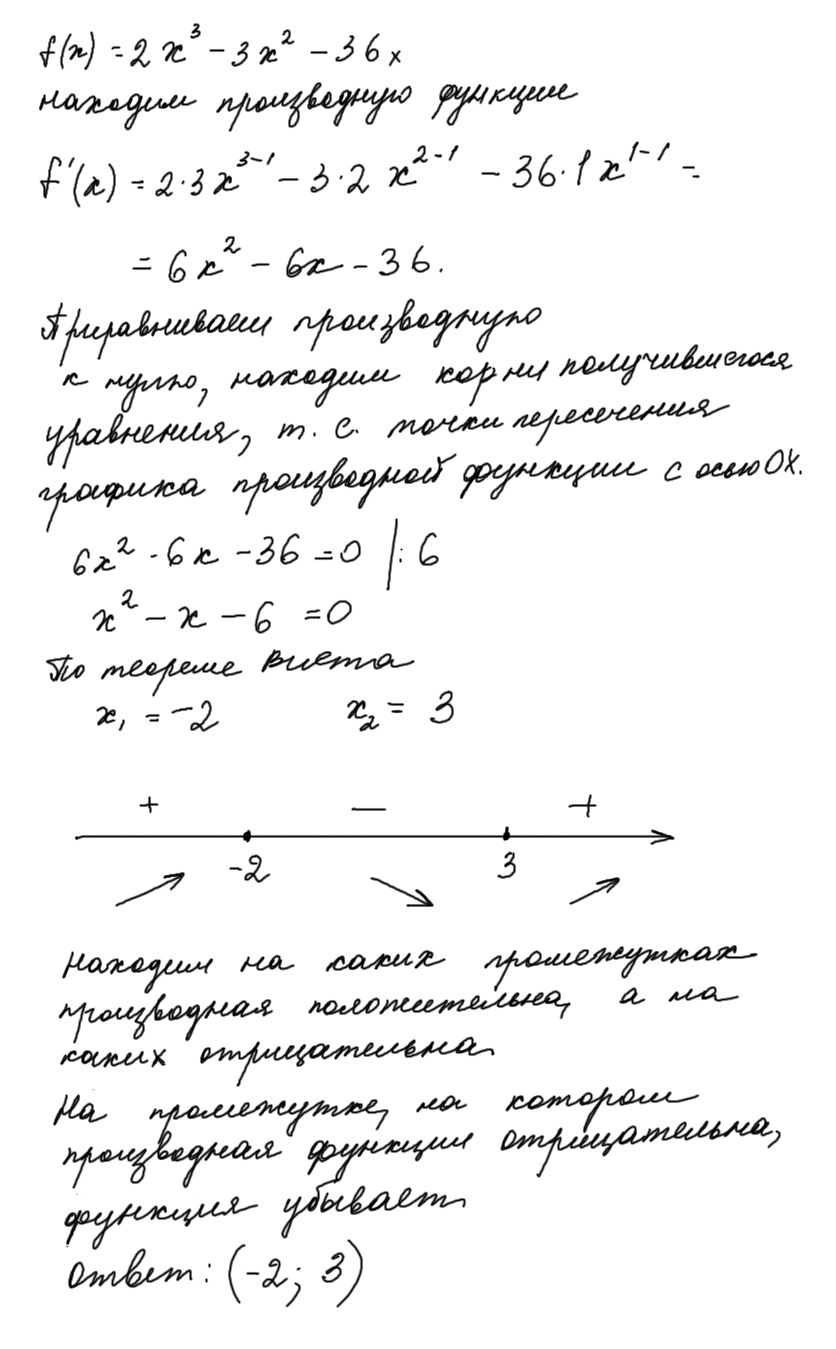 f(x) = 2x³ - 3x² - 36x
находим производную функции
f'(x) = 2·3x³⁻¹ - 3·2x²⁻¹ - 36·1x¹⁻¹ =
= 6x² - 6x - 36.
Приравниваем производную
к нулю, находим корни получившегося
уравнения, т. е. точки пересечения
графика производной функции с осью OX.
6x² - 6x - 36 = 0 |: 6
x² - x - 6 = 0
По теореме Виета
x₁ = -2 x₂ = 3
+ — +
-2 3
Находим на каких промежутках
производная положительна, а на
каких отрицательна
На промежутке, на котором
производная функции отрицательна,
функция убывает
Ответ: (-2; 3)